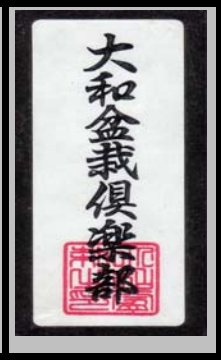 大和盆栽倶楽部